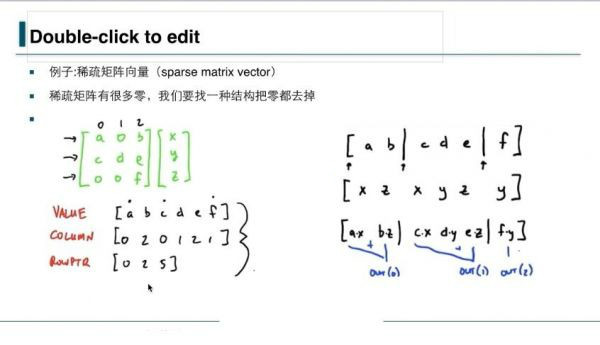 Double-click to edit
例子:稀疏矩阵向量（sparse matrix vector）
稀疏矩阵有很多零，我们要找一种结构把零都去掉
0 1 2
[a 0 b] [x]
[c d e] [y]
[0 0 f] [z]
VALUE [a b c d e f]
COLUMN [0 2 0 1 2 1]
ROWPTR [0 2 5]
[a b| c d e| f]
[x z x y z y]
[a·x b·z| c·x d·y e·z| f·y]
+ +
OUT(0) OUT(1) OUT(2)